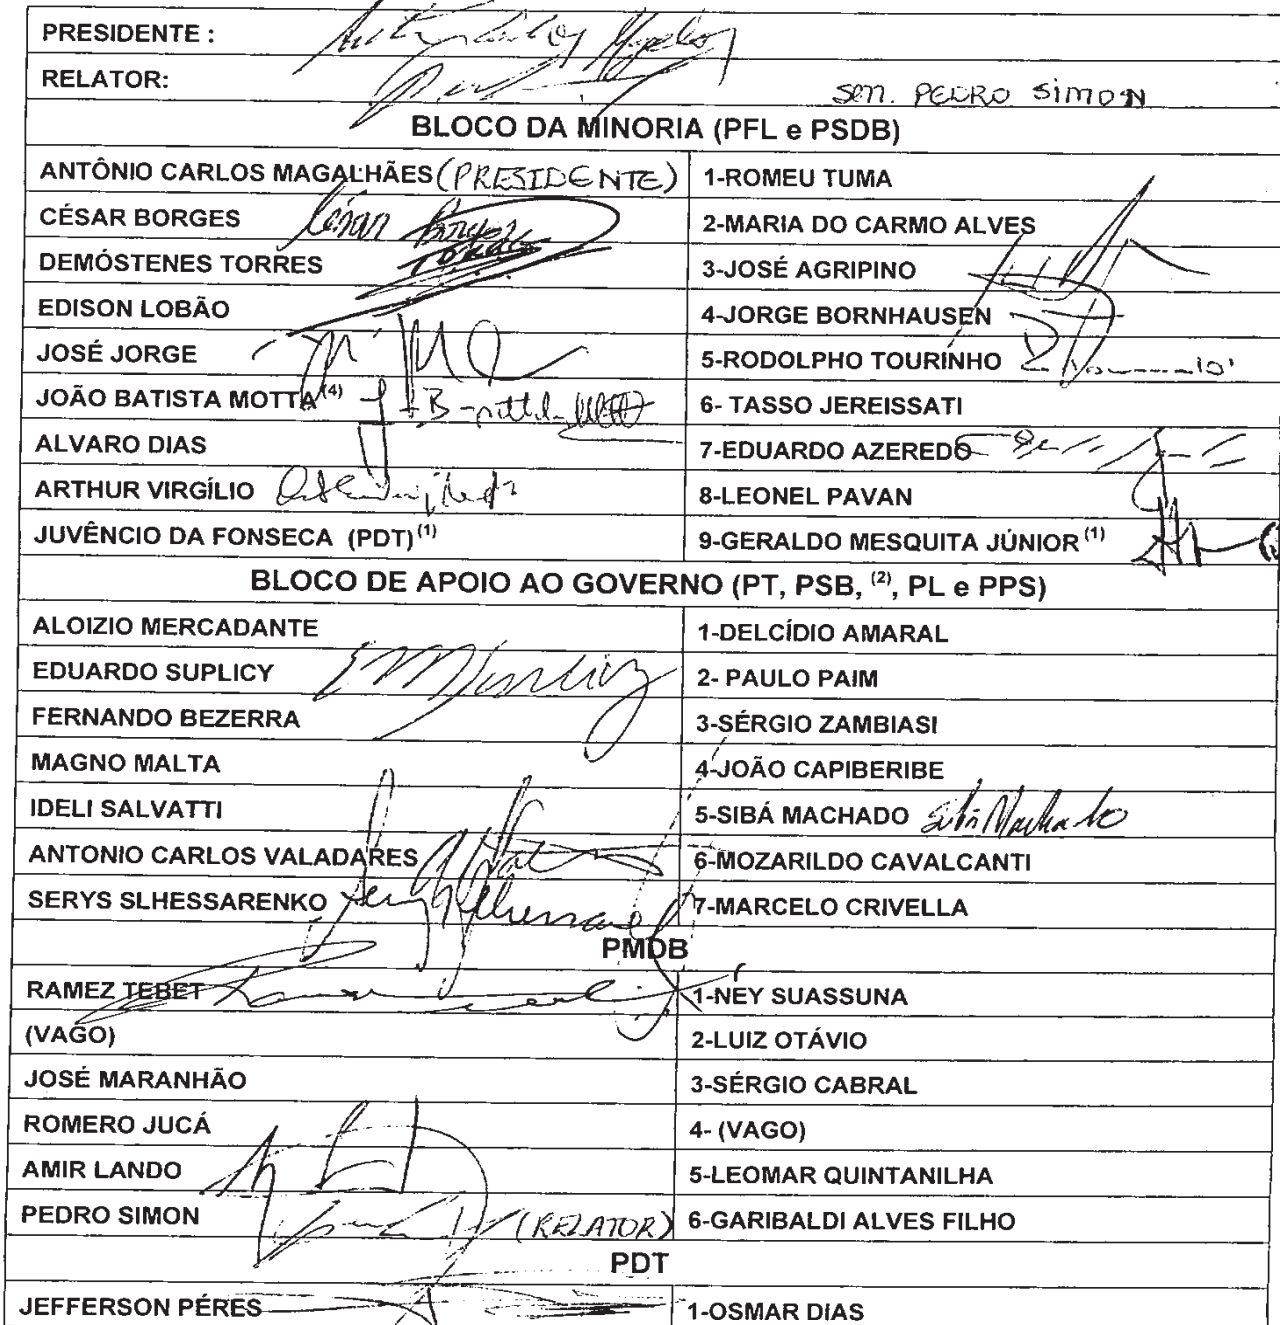 PRESIDENTE :
RELATOR: Sen. PEDRO SIMON
BLOCO DA MINORIA (PFL e PSDB)
ANTÔNIO CARLOS MAGALHÃES (PRESIDENTE) 1-ROMEU TUMA
CÉSAR BORGES César Borges 2-MARIA DO CARMO ALVES
DEMÓSTENES TORRES 3-JOSÉ AGRIPINO
EDISON LOBÃO 4-JORGE BORNHAUSEN
JOSÉ JORGE 5-RODOLPHO TOURINHO
JOÃO BATISTA MOTTA (4) 6- TASSO JEREISSATI
ALVARO DIAS 7-EDUARDO AZEREDO
ARTHUR VIRGÍLIO 8-LEONEL PAVAN
JUVÊNCIO DA FONSECA (PDT) (1) 9-GERALDO MESQUITA JÚNIOR (1)
BLOCO DE APOIO AO GOVERNO (PT, PSB, (2), PL e PPS)
ALOIZIO MERCADANTE 1-DELCÍDIO AMARAL
EDUARDO SUPLICY 2- PAULO PAIM
FERNANDO BEZERRA 3-SÉRGIO ZAMBIASI
MAGNO MALTA 4-JOÃO CAPIBERIBE
IDELI SALVATTI 5-SIBÁ MACHADO Sibá Machado
ANTONIO CARLOS VALADARES 6-MOZARILDO CAVALCANTI
SERYS SLHESSARENKO 7-MARCELO CRIVELLA
PMDB
RAMEZ TEBET 1-NEY SUASSUNA
(VAGO) 2-LUIZ OTÁVIO
JOSÉ MARANHÃO 3-SÉRGIO CABRAL
ROMERO JUCÁ 4- (VAGO)
AMIR LANDO 5-LEOMAR QUINTANILHA
PEDRO SIMON (RELATOR) 6-GARIBALDI ALVES FILHO
PDT
JEFFERSON PÉRES 1-OSMAR DIAS